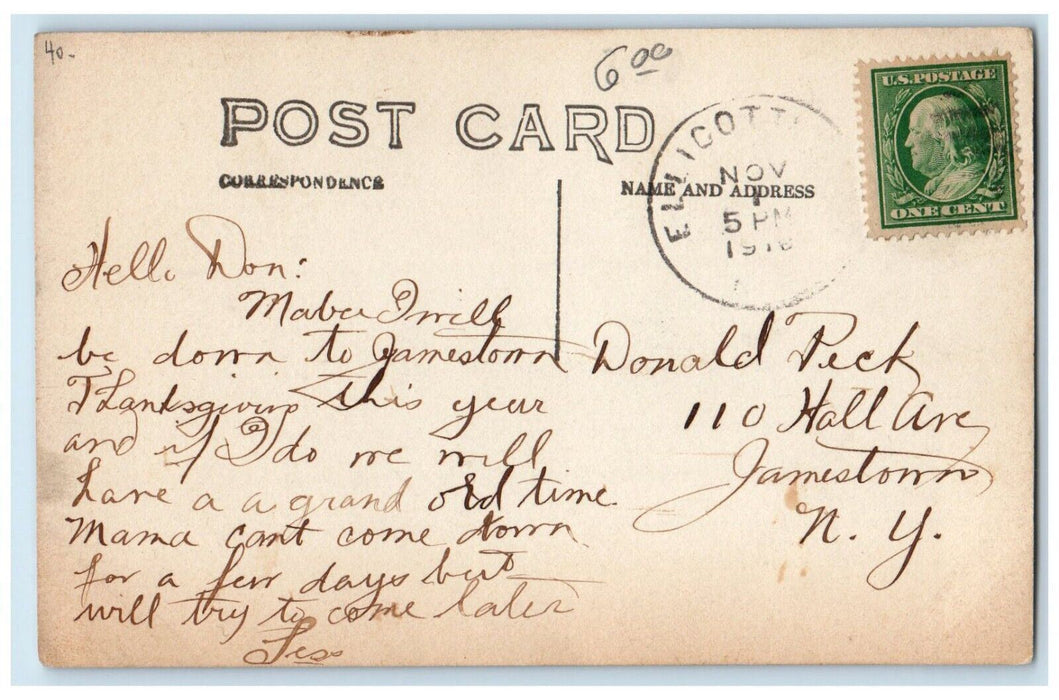 40-
6.00
POST CARD
CORRESPONDENCE
NAME AND ADDRESS
ELLICOTT
NOV
5 PM
U.S. POSTAGE
ONE CENT
Hello Don:
Mabe I will
be down to Jamestown
Thanksgiving this year
and if I do we will
have a a grand old time
Mama cant come down
for a few days but
will try to come later
Donald Peck
110 Hall Ave
Jamestown
N. Y.